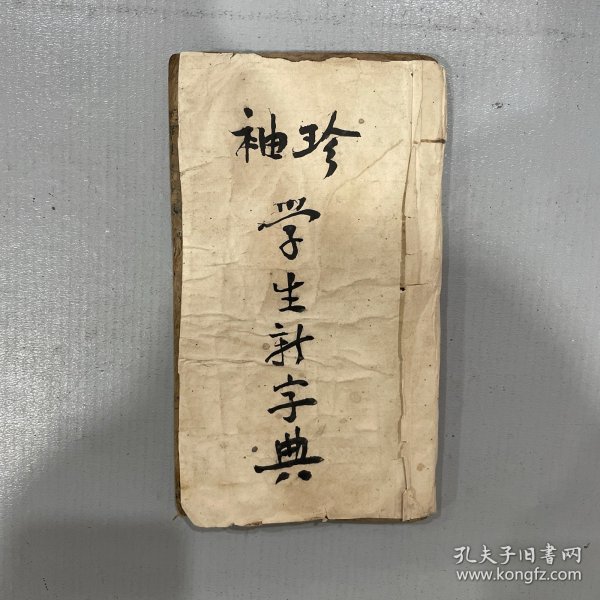 袖珍
学生新字典
孔夫子旧書网
www.kongfz.com